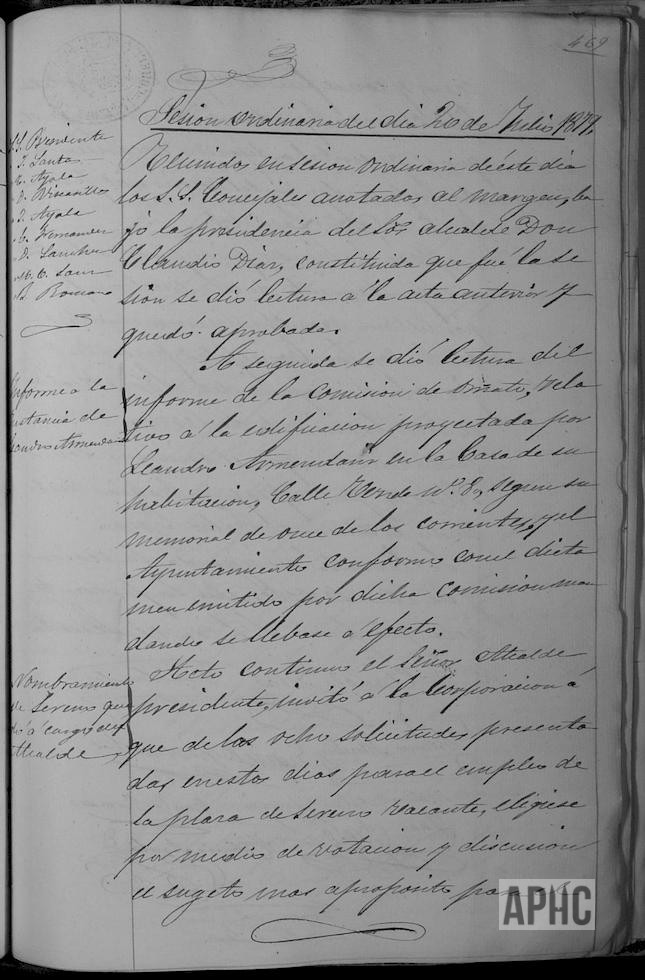 469
Sesion ordinaria del dia 20 de Julio 1871.
S.S. Presidente
Santos
Ayala
Ayala
Fernandez
Sanchez
Sanz
Romano
Reunidos en sesion ordinaria de éste dia
los S.S. Concejales anotados al margen, ba
jo la presidencia del Sor. alcalde Don
Claudio Diaz, constituida que fué la se
sion se dió lectura á la acta anterior y
quedó aprobada.
Informe a la
instancia de
Leandro Armendariz
A seguida se dió lectura del
informe de la Comision de Ornato, rela
tivo á la edificacion proyectada por
Leandro Armendariz en la Casa de su
habitacion, Calle Verde Nº 8, segun su
memorial de once de los corrientes, y el
Ayuntamiento conforme con el dicta
men emitido por dicha comision man
dando se llebase a efecto.
Nombramiento
de sereno que
dó á cargo del
Alcalde
Acto continuo el Señor Alcalde
presidente, invitó á la Corporacion á
que de las ocho solicitudes presenta
das en estos dias para el empleo de
la plaza de Sereno vacante, eligiese
por medio de votacion y discusion
el sugeto mas aproposito para
APHC